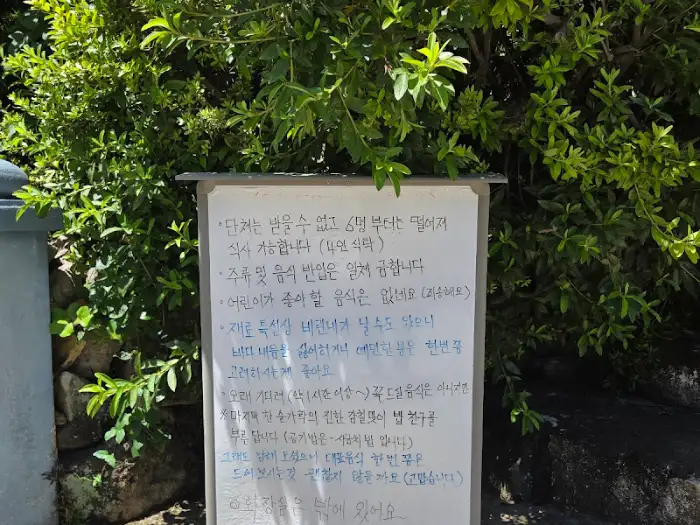 · 단체는 받을 수 없고 6명 부터는 떨어져
식사 가능합니다 (4인 식탁)
· 주류 및 음식 반입은 일체 금합니다
· 어린이가 좋아할 음식은 없네요 (죄송해요)
· 재료 특성상 비린내가 날 수도 있으니
바다내음을 싫어하거나 예민한 분은 한번 쯤
고려하시는게 좋아요
· 오래 기다려 (약 1시간 이상~) 꼭 드실음식은 아니지만
※ 마지막 한 숟가락의 진한 감칠맛이 밥 한공기를
부릅답니다 (공기밥은 입니다)
그래도 오셨으니 대표음식 한번 쯤은
드셔보시는것 괜찮지 않을까요 (고맙습니다)
화장실은 밖에 있어요~